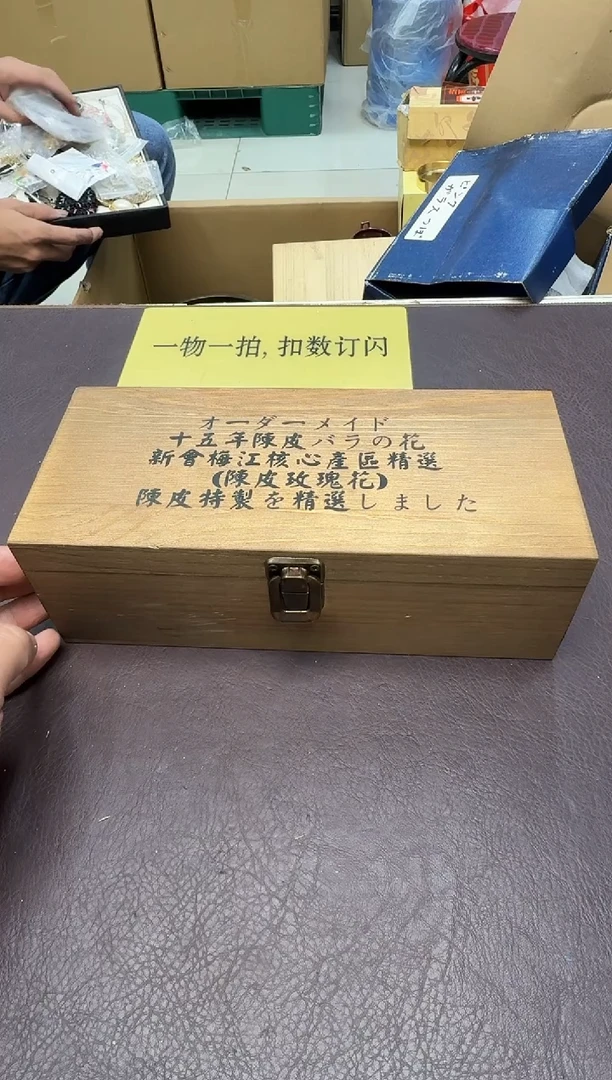 ピンク
ガラスつぼ
一物一拍, 扣数订闪
オーダーメイド
十五年陳皮バラの花
新會梅江核心產區精選
(陳皮玫瑰花)
陳皮特製を精選しました